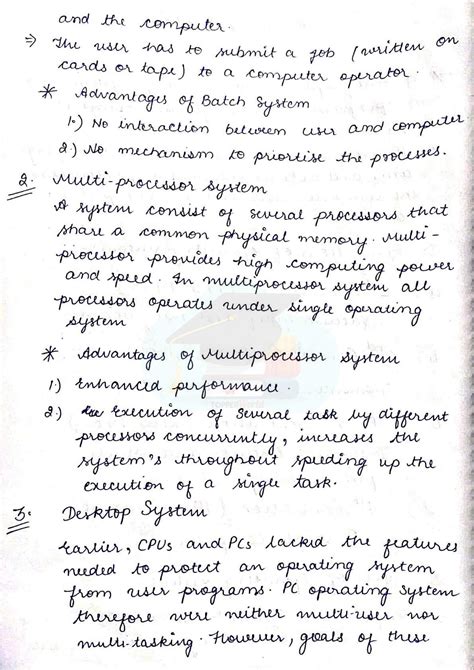 and the computer.
⇒ The user has to submit a job (written on
cards or tape) to a computer operator.
* Advantages of Batch System
1.) No interaction between user and computer
2.) No mechanism to prioritise the processes.
2. Multi-processor system
A system consist of several processors that
share a common physical memory. Multi-
processor provides high computing power
and speed. In multiprocessor system all
processors operates under single operating
system
* Advantages of Multiprocessor System
1.) Enhanced performance.
2.) Execution of several task by different
processors concurrently, increases the
system's throughout speeding up the
execution of a single task.
3. Desktop System
Earlier, CPUs and PCs lacked the features
needed to protect an operating system
from user programs. PC operating system
therefore were neither multi-user nor
multi-tasking. However, goals of these